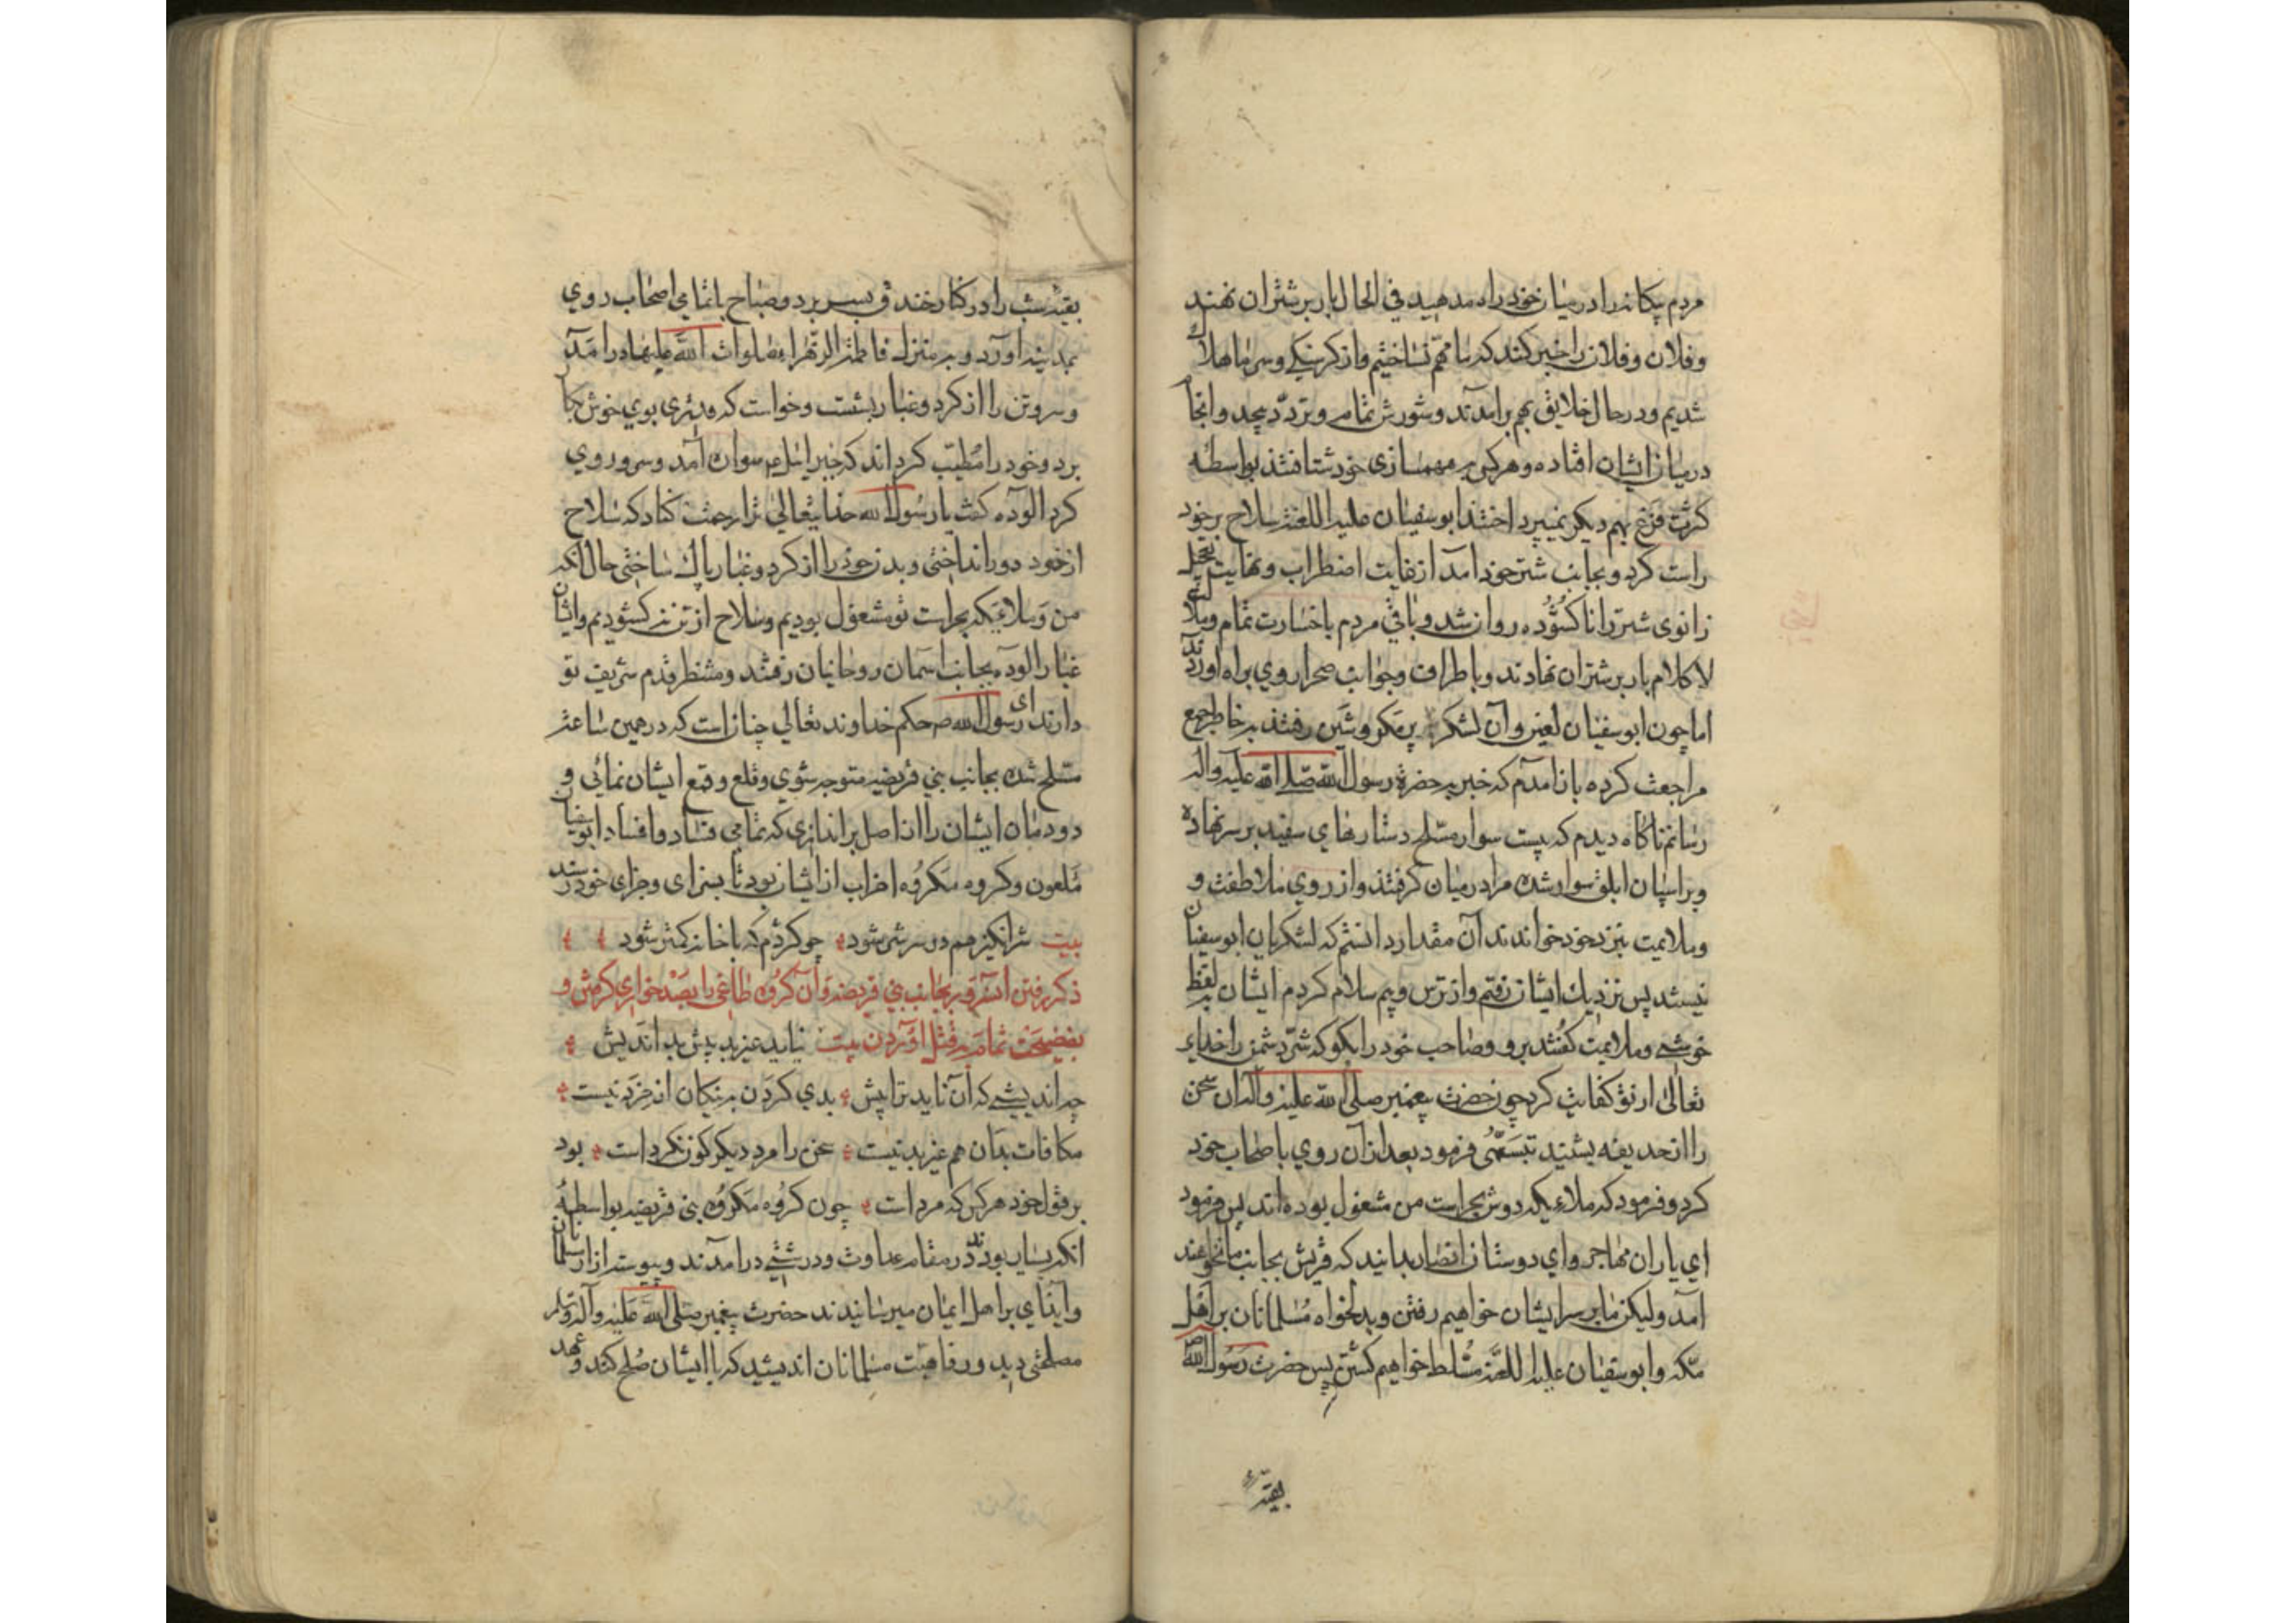 مردم بیکانه را در میان خود راه مدهید فی الحال بار بر شتران نهند
و فلان و فلان را خبر کنند که ما مهم نساختیم و از کرسنکی و سرما هلاک
شدیم و در حال خلایق بهم برآمدند و شورش تمام و تردد بیحد و انجا
در میان ایشان افتاده و هر کس به مهمسازی خود شتافتند بواسطه
کثرت فزع بهم دیکر نمیپرداختند ابو سفیان علیه اللعنه سلاح بر خود
راست کرد و بجانب شتر خود آمد از غایت اضطراب و نهایت تعجیل
زانوی شتر را ناکشوده روان شد و باقی مردم با خسارت تمام و بلا
لا کلام بار بر شتران نهادند و باطراف و جوانب صحرا روی براه اوردند
اما چون ابو سفیان لعین و آن لشکر پر مکر و شین رفتند به خاطر جمع
مراجعت کرده باز آمدم که خبر به حضرة رسول الله صلی الله علیه و اله
رسانم ناکاه دیدم که بیست سوار مسلح دستارهای سفید بر سر نهاده
و بر اسپان ابلق سوار شده مرا در میان کرفتند و از روی ملاطفت و
و ملایمت بنزد خود خواندند آن مقدار دانستم که لشکریان ابو سفیان
نیستند پس نزدیک ایشان رفتم و از ترس و بیم سلام کردم ایشان به لفظ
خوشی و ملایمت کفتند برو و صاحب خود را بکو که شر دشمن را خدای
تعالی از تو کفایت کرد چون حضرت پیغمبر صلی الله علیه و آله آن سخن
را از حدیفه بشنید تبسمی فرمود بعد از آن روی باصحاب خود
کرد و فرمود که ملاءیکه دوش بحراست من مشغول بوده اند پس فرمود
ای یاران مهاجر و ای دوستان انصار بدانید که قریش بجانب ما نخواهند
آمد ولیکن ما بر سر ایشان خواهیم رفتن و بدلخواه مسلمانان بر اهل
مکه و ابو سفیان علیه اللعنه مسلط خواهیم کشتن پس حضرت رسول الله ص
بقیه
بقیه شب را در کنار خندق بسر برد و صباح با تمامی اصحاب روی
بمدینه اورد و به منزل فاطمة الزهراء صلوات الله علیها درآمد
و سر و تن را از کرد و غبار بشست و خواست که قدری بوی خوش بکار
برد و خود را مطیب کرداند که جبرائیل ع سواره آمد و سر و روی
کرد آلوده کفت یا رسول الله خدایتعالی ترا رحمت کناد که سلاح
از خود دور انداختی و بدن خود را از کرد و غبار پاک ساختی حال آنکه
من و ملاءیکه بحراست تو مشغول بودیم و سلاح از تن نکشودیم و ایشان
غبار آلوده بجانب آسمان روحانیان رفتند و منتظر قدم شریف تو
دارند ای رسول الله ص حکم خداوند تعالی چنان است که در همین ساعت
مسلح شده بجانب بنی قریضه متوجه شوی و قلع و قمع ایشان نمائی و
دودمان ایشان را از اصل براندازی که تمامی فساد و افساد ابو سفیان
ملعون و کروه مکروه احزاب از ایشان بود تا بسزای و جزای خود رسند
بیت شر انکیز هم در سر شر شود چو کژدم که با خانه کمتر شود
ذکر رفتن آنسرور بجانب بنی قریضه و آن کروه طاغی را بصد خواری کرفتن و
بفضیحت تمام به قتل اوردن بیت نیاید عزیز بدبیش بداندیش
چه اندیشی که آن ناید ترا پیش بدی کردن به نیکان از خرد نیست
مکافات بدان هم غیر بد نیست سخن را مرد دیکر کون نکرد است بود
بر قول خود هر کس که مرد است چون کروه مکروه بنی قریضه بواسطه
آنکه بسیار بودند در مقام عداوت و درشتی درآمدند و پیوسته ازار سلمانان
و ایذای بر اهل ایمان میرسانیدند حضرت پیغمبر صلی الله علیه و آله و سلم
مصلحتی دید و رفاهیت مسلمانان اندیشید که با ایشان صلح کند و عهد